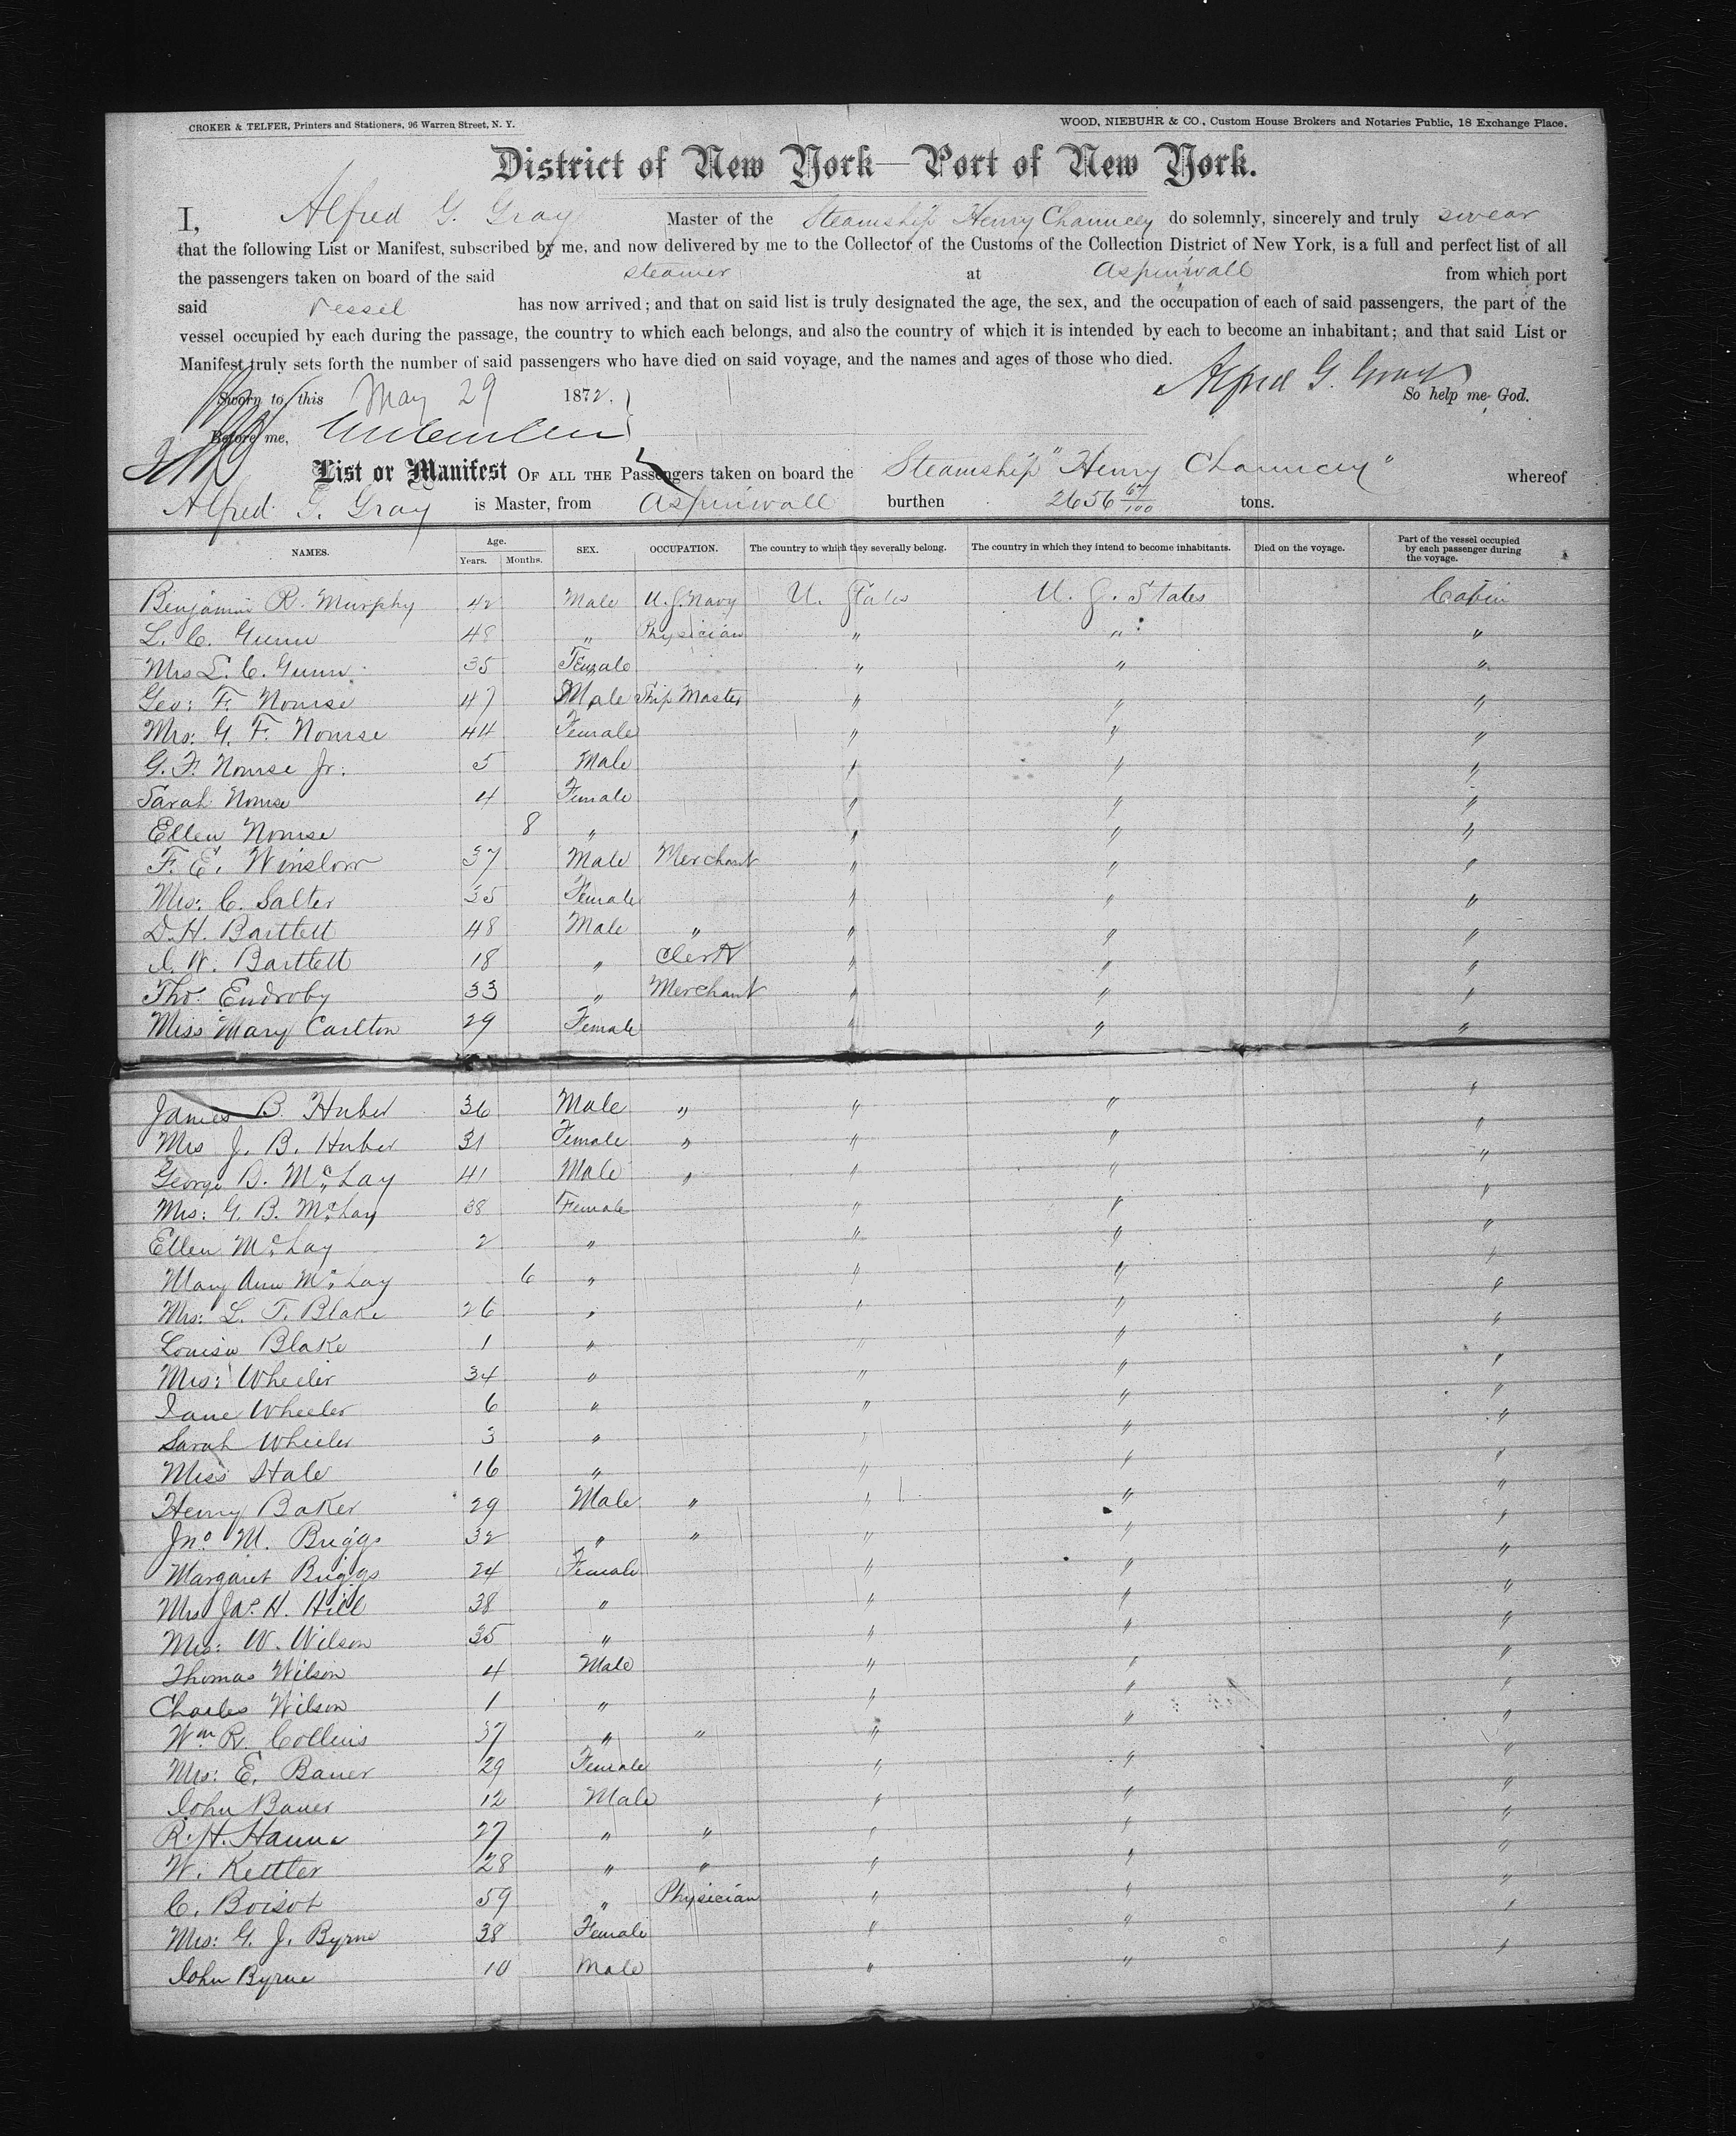 CROKER & TELFER, Printers and Stationers, 96 Warren Street, N. Y.
WOOD, NIEBUHR & CO., Custom House Brokers and Notaries Public, 18 Exchange Place.
District of New York—Port of New York.
I, Alfred G. Gray Master of the Steamship Henry Chauncey do solemnly, sincerely and truly swear
that the following List or Manifest, subscribed by me, and now delivered by me to the Collector of the Customs of the Collection District of New York, is a full and perfect list of all
the passengers taken on board of the said steamer at Aspinwall from which port
said vessel has now arrived; and that on said list is truly designated the age, the sex, and the occupation of each of said passengers, the part of the
vessel occupied by each during the passage, the country to which each belongs, and also the country of which it is intended by each to become an inhabitant; and that said List or
Manifest truly sets forth the number of said passengers who have died on said voyage, and the names and ages of those who died.
Alfred G. Gray
Sworn to this May 29 1872. So help me God.
Before me,
List or Manifest OF ALL THE Passengers taken on board the Steamship "Henry Chauncey" whereof
Alfred G. Gray is Master, from Aspinwall burthen 2656 67/100 tons.
NAMES. Age. Years. Months. SEX. OCCUPATION. The country to which they severally belong. The country in which they intend to become inhabitants. Died on the voyage. Part of the vessel occupied by each passenger during the voyage.
Benjamin R. Murphy 42 Male U.S. Navy U. States U. S. States Cabin
L. C. Gunn 48 " Physician " " "
Mrs L. C. Gunn 35 Female " " "
Geo: F. Nourse 47 Male Ship Master " " "
Mrs: G. F. Nourse 44 Female " " "
G. F. Nourse Jr. 5 Male " " "
Sarah Nourse 4 Female " " "
Ellen Nourse 8 " " " "
F. E. Winslow 37 Male Merchant " " "
Mrs: C. Salter 35 Female " " "
D. H. Bartlett 48 Male " " " "
I. W. Bartlett 18 " Clerk " " "
Tho: Endroby 33 " Merchant " " "
Miss Mary Carlton 29 Female " " "
James B. Huber 36 Male " " " "
Mrs J. B. Huber 31 Female " " " "
George B. McLay 41 Male " " " "
Mrs: G. B. McLay 38 Female " " "
Ellen McLay 2 " " " "
Mary Ann McLay 6 " " " "
Mrs: L. T. Blake 26 " " " "
Louisa Blake 1 " " " "
Mrs: Wheeler 34 " " " "
Jane Wheeler 6 " " " "
Sarah Wheeler 3 " " " "
Miss Hale 16 " " " "
Henry Baker 29 Male " " " "
Jno. M. Briggs 32 " " " " "
Margaret Briggs 24 Female " " "
Mrs Jas. H. Hill 38 " " " "
Mrs: W. Wilson 35 " " " "
Thomas Wilson 4 Male " " "
Charles Wilson 1 " " " "
Wm R. Collins 37 " " " " "
Mrs: E. Bauer 29 Female " " "
John Bauer 12 Male " " "
R. H. Hanna 27 " " " " "
W. Kettler 28 " " " " "
C. Boisot 59 " Physician " " "
Mrs: G. J. Byrne 38 Female " " "
John Byrne 10 Male " " "